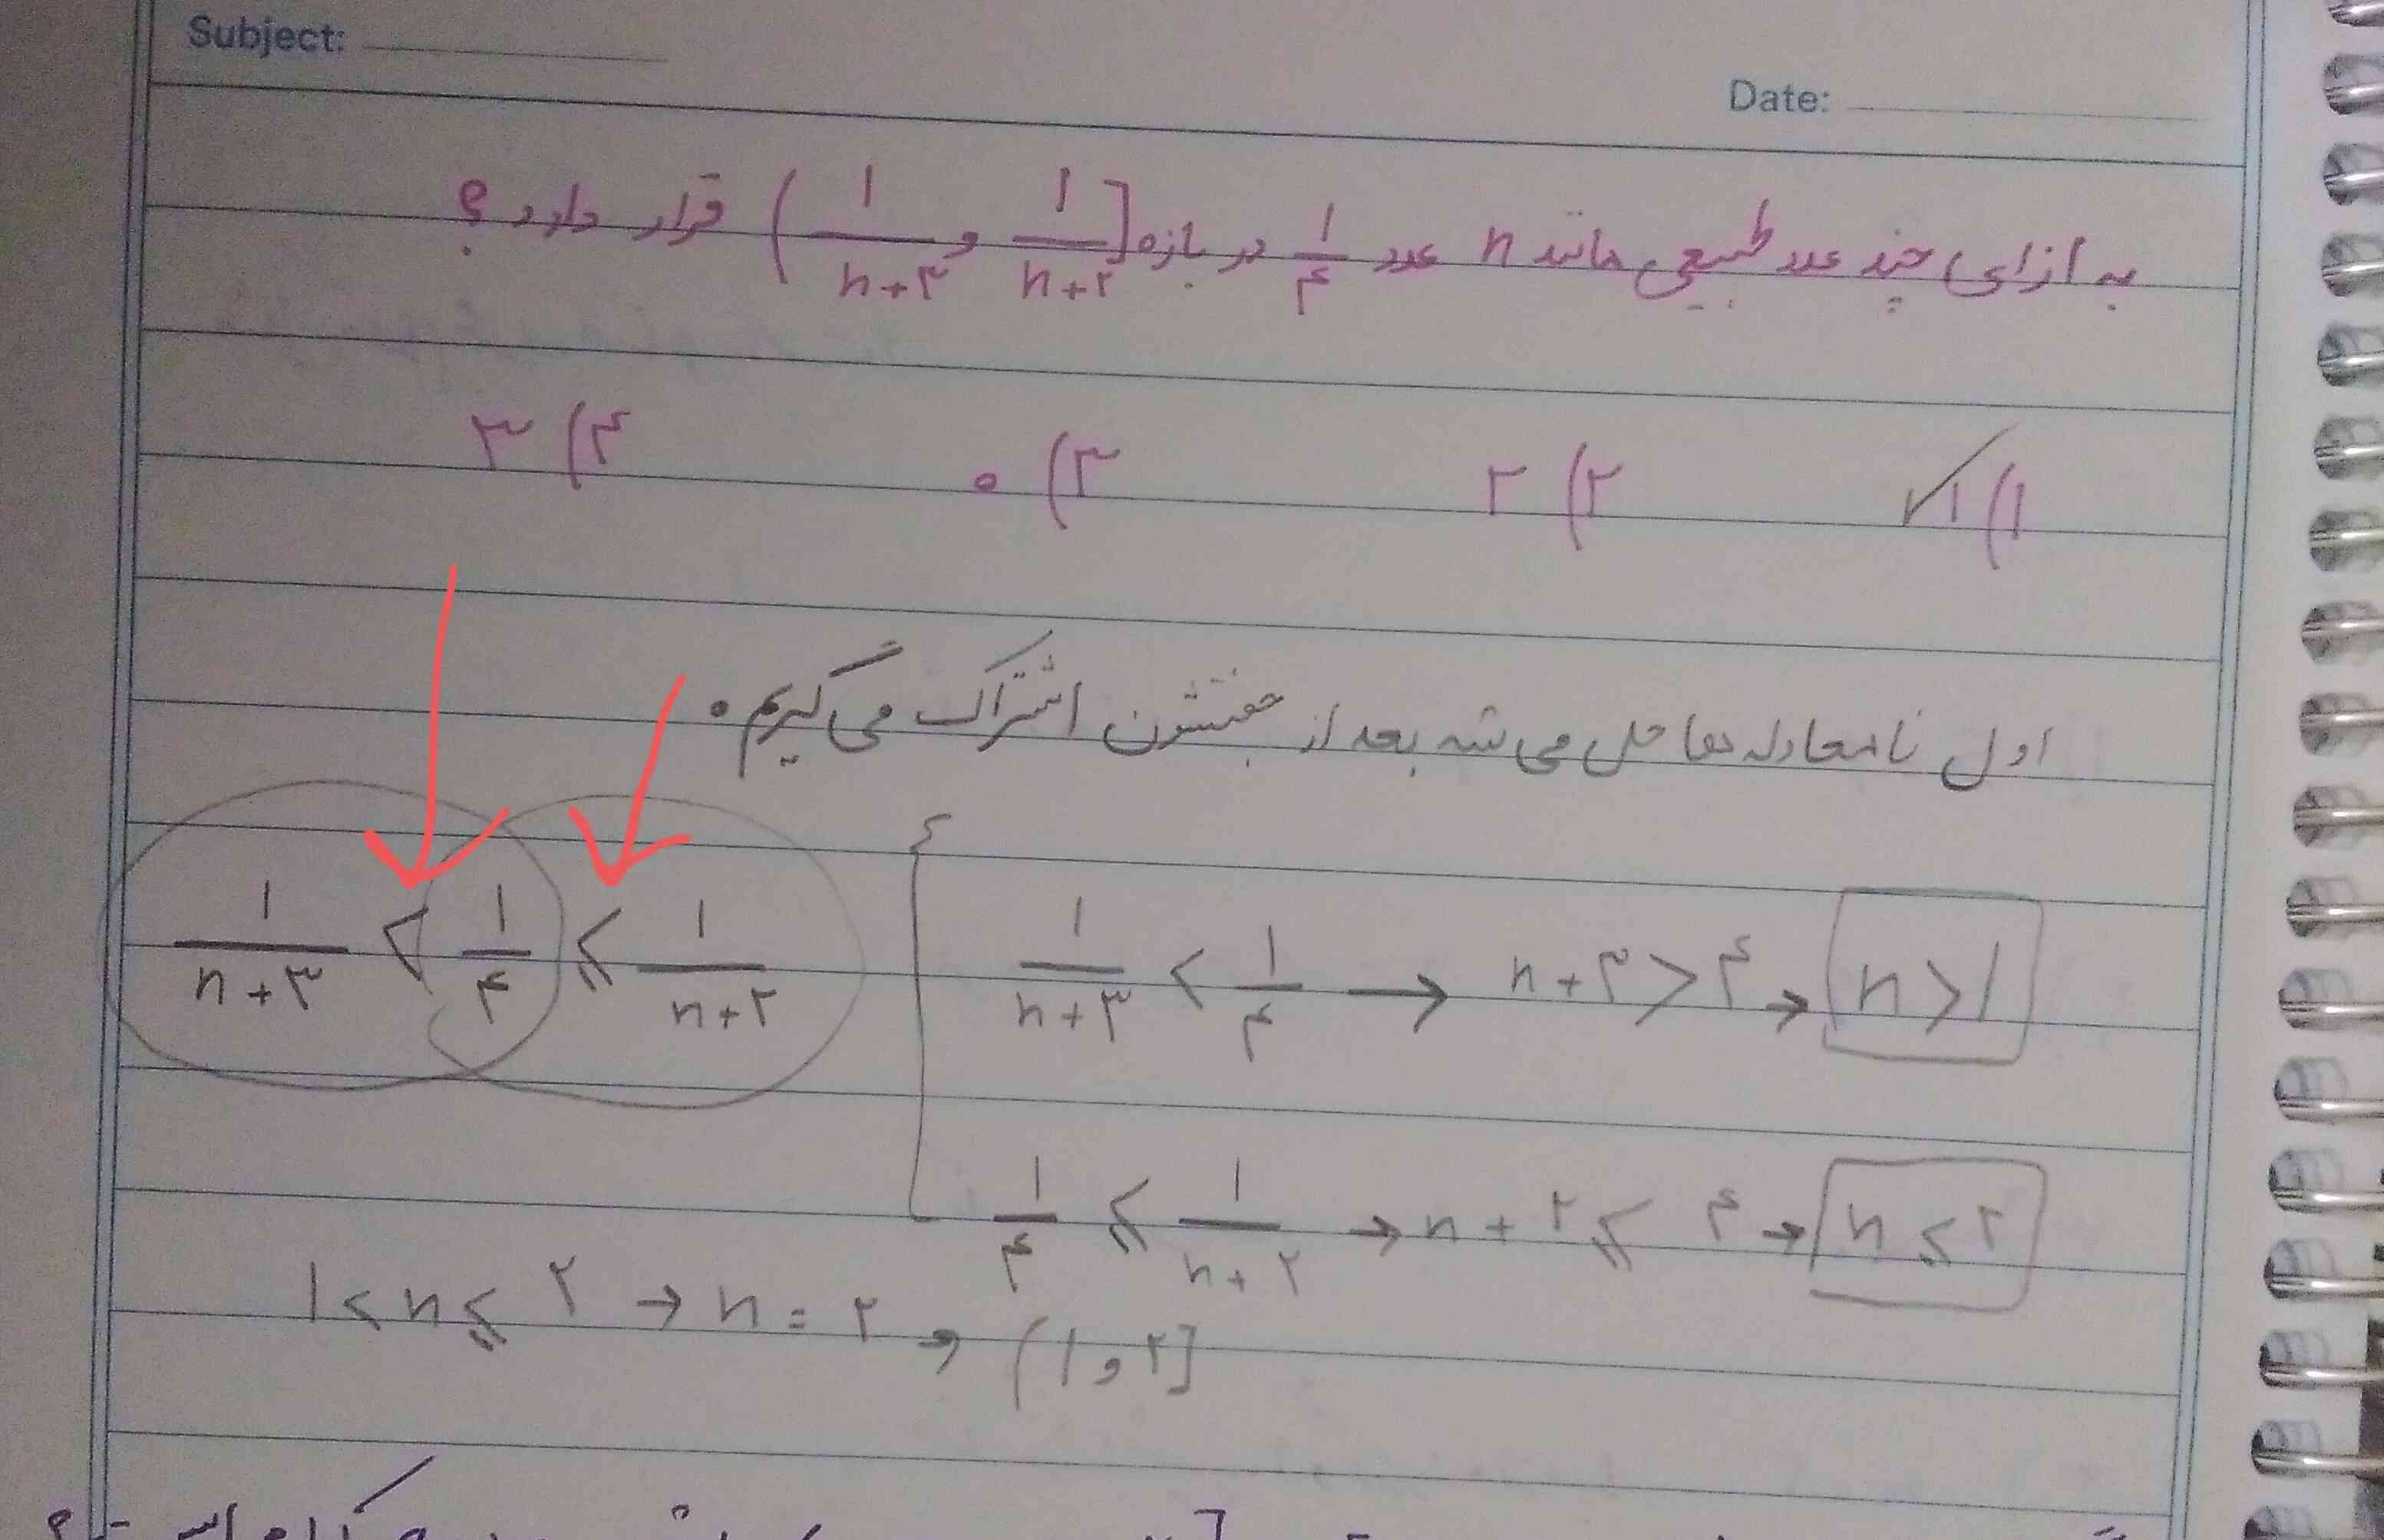 Subject:
Date:
به ازای چند عدد طبیعی مانند n عدد ۱/۴ در بازه (۱/n+۳ و ۱/n+۲] قرار دارد؟
۱) ۱ ۲) ۲ ۳) ۰ ۴) ۳
اول نامعادله ها حل می شه بعد از جفتشون اشتراک می گیریم.
۱/n+۳ < ۱/۴ ≤ ۱/n+۲
۱/n+۳ < ۱/۴ → n+۳ > ۴ → n > ۱
۱/۴ ≤ ۱/n+۲ → n+۲ ≤ ۴ → n ≤ ۲
۱ < n ≤ ۲ → n = ۲ → (۱ و ۲]